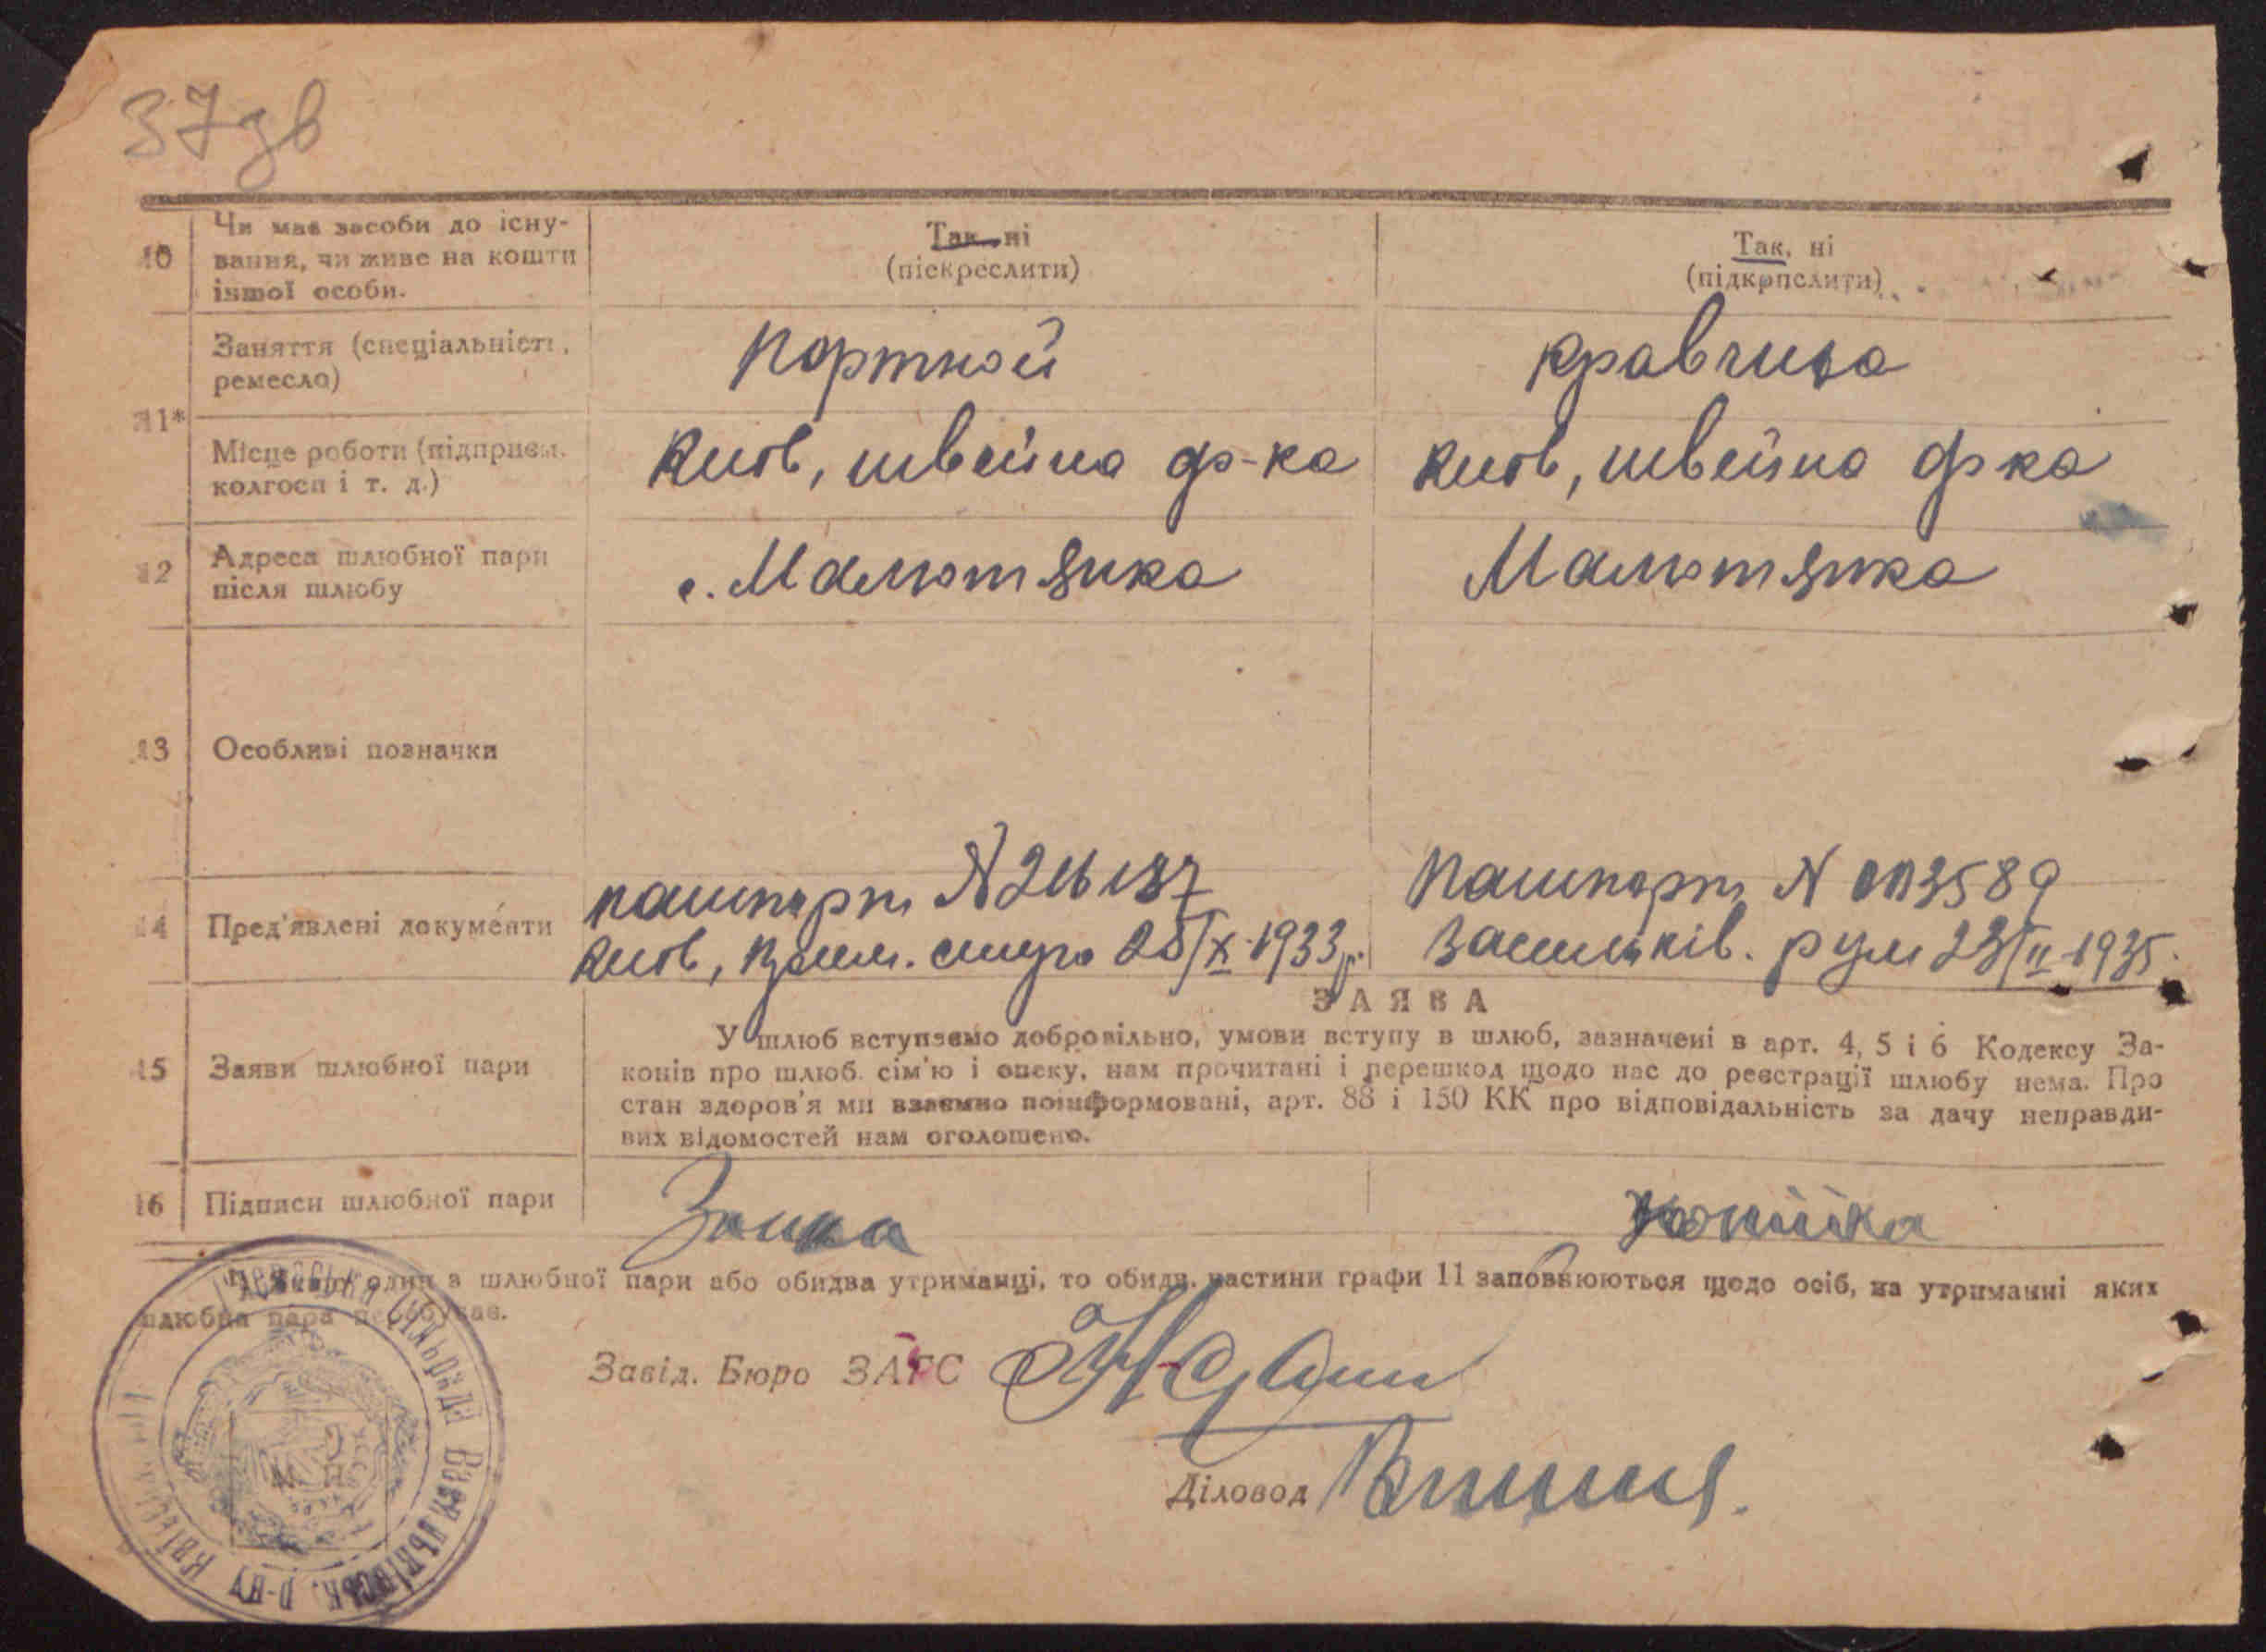 37 зв
10 Чи має засоби до існу-
вання, чи живе на кошти
іншої особи.
Так, ні
(піскреслити)
Так, ні
(підкрпслити)
Заняття (спеціальність,
ремесло)
Портной
кравчиха
11*
Місце роботи (підприєм.
колгосп і т. д.)
Київ, швейна ф-ка
Київ, швейна ф-ка
12 Адреса шлюбної пари
після шлюбу
с. Малютянка
Малютянка
13 Особливі позначки
14 Пред'явлені документи
пашпорт N
Київ, 25/X-1933р.
Пашпорт N 3589
Васильків. рум 23/II-1935.
ЗАЯВА
15 Заяви шлюбної пари
У шлюб вступаємо добровільно, умови вступу в шлюб, зазначені в арт. 4, 5 і 6 Кодексу За-
конів про шлюб. сім'ю і опеку, нам прочитані і перешкод щодо нас до реєстрації шлюбу нема. Про
стан здоров'я ми взаємно поінформовані, арт. 88 і 150 КК про відповідальність за дачу неправди-
вих відомостей нам оголошено.
16 Підписи шлюбної пари
Заика
один з шлюбної пари або обидва утриманці, то обидв. частини графи 11 заповнюються щодо осіб, на утриманні яких
шлюбна пара перебуває.
Завід. Бюро ЗАГС
Діловод
сільрада Васильківськ. р-ну Київ